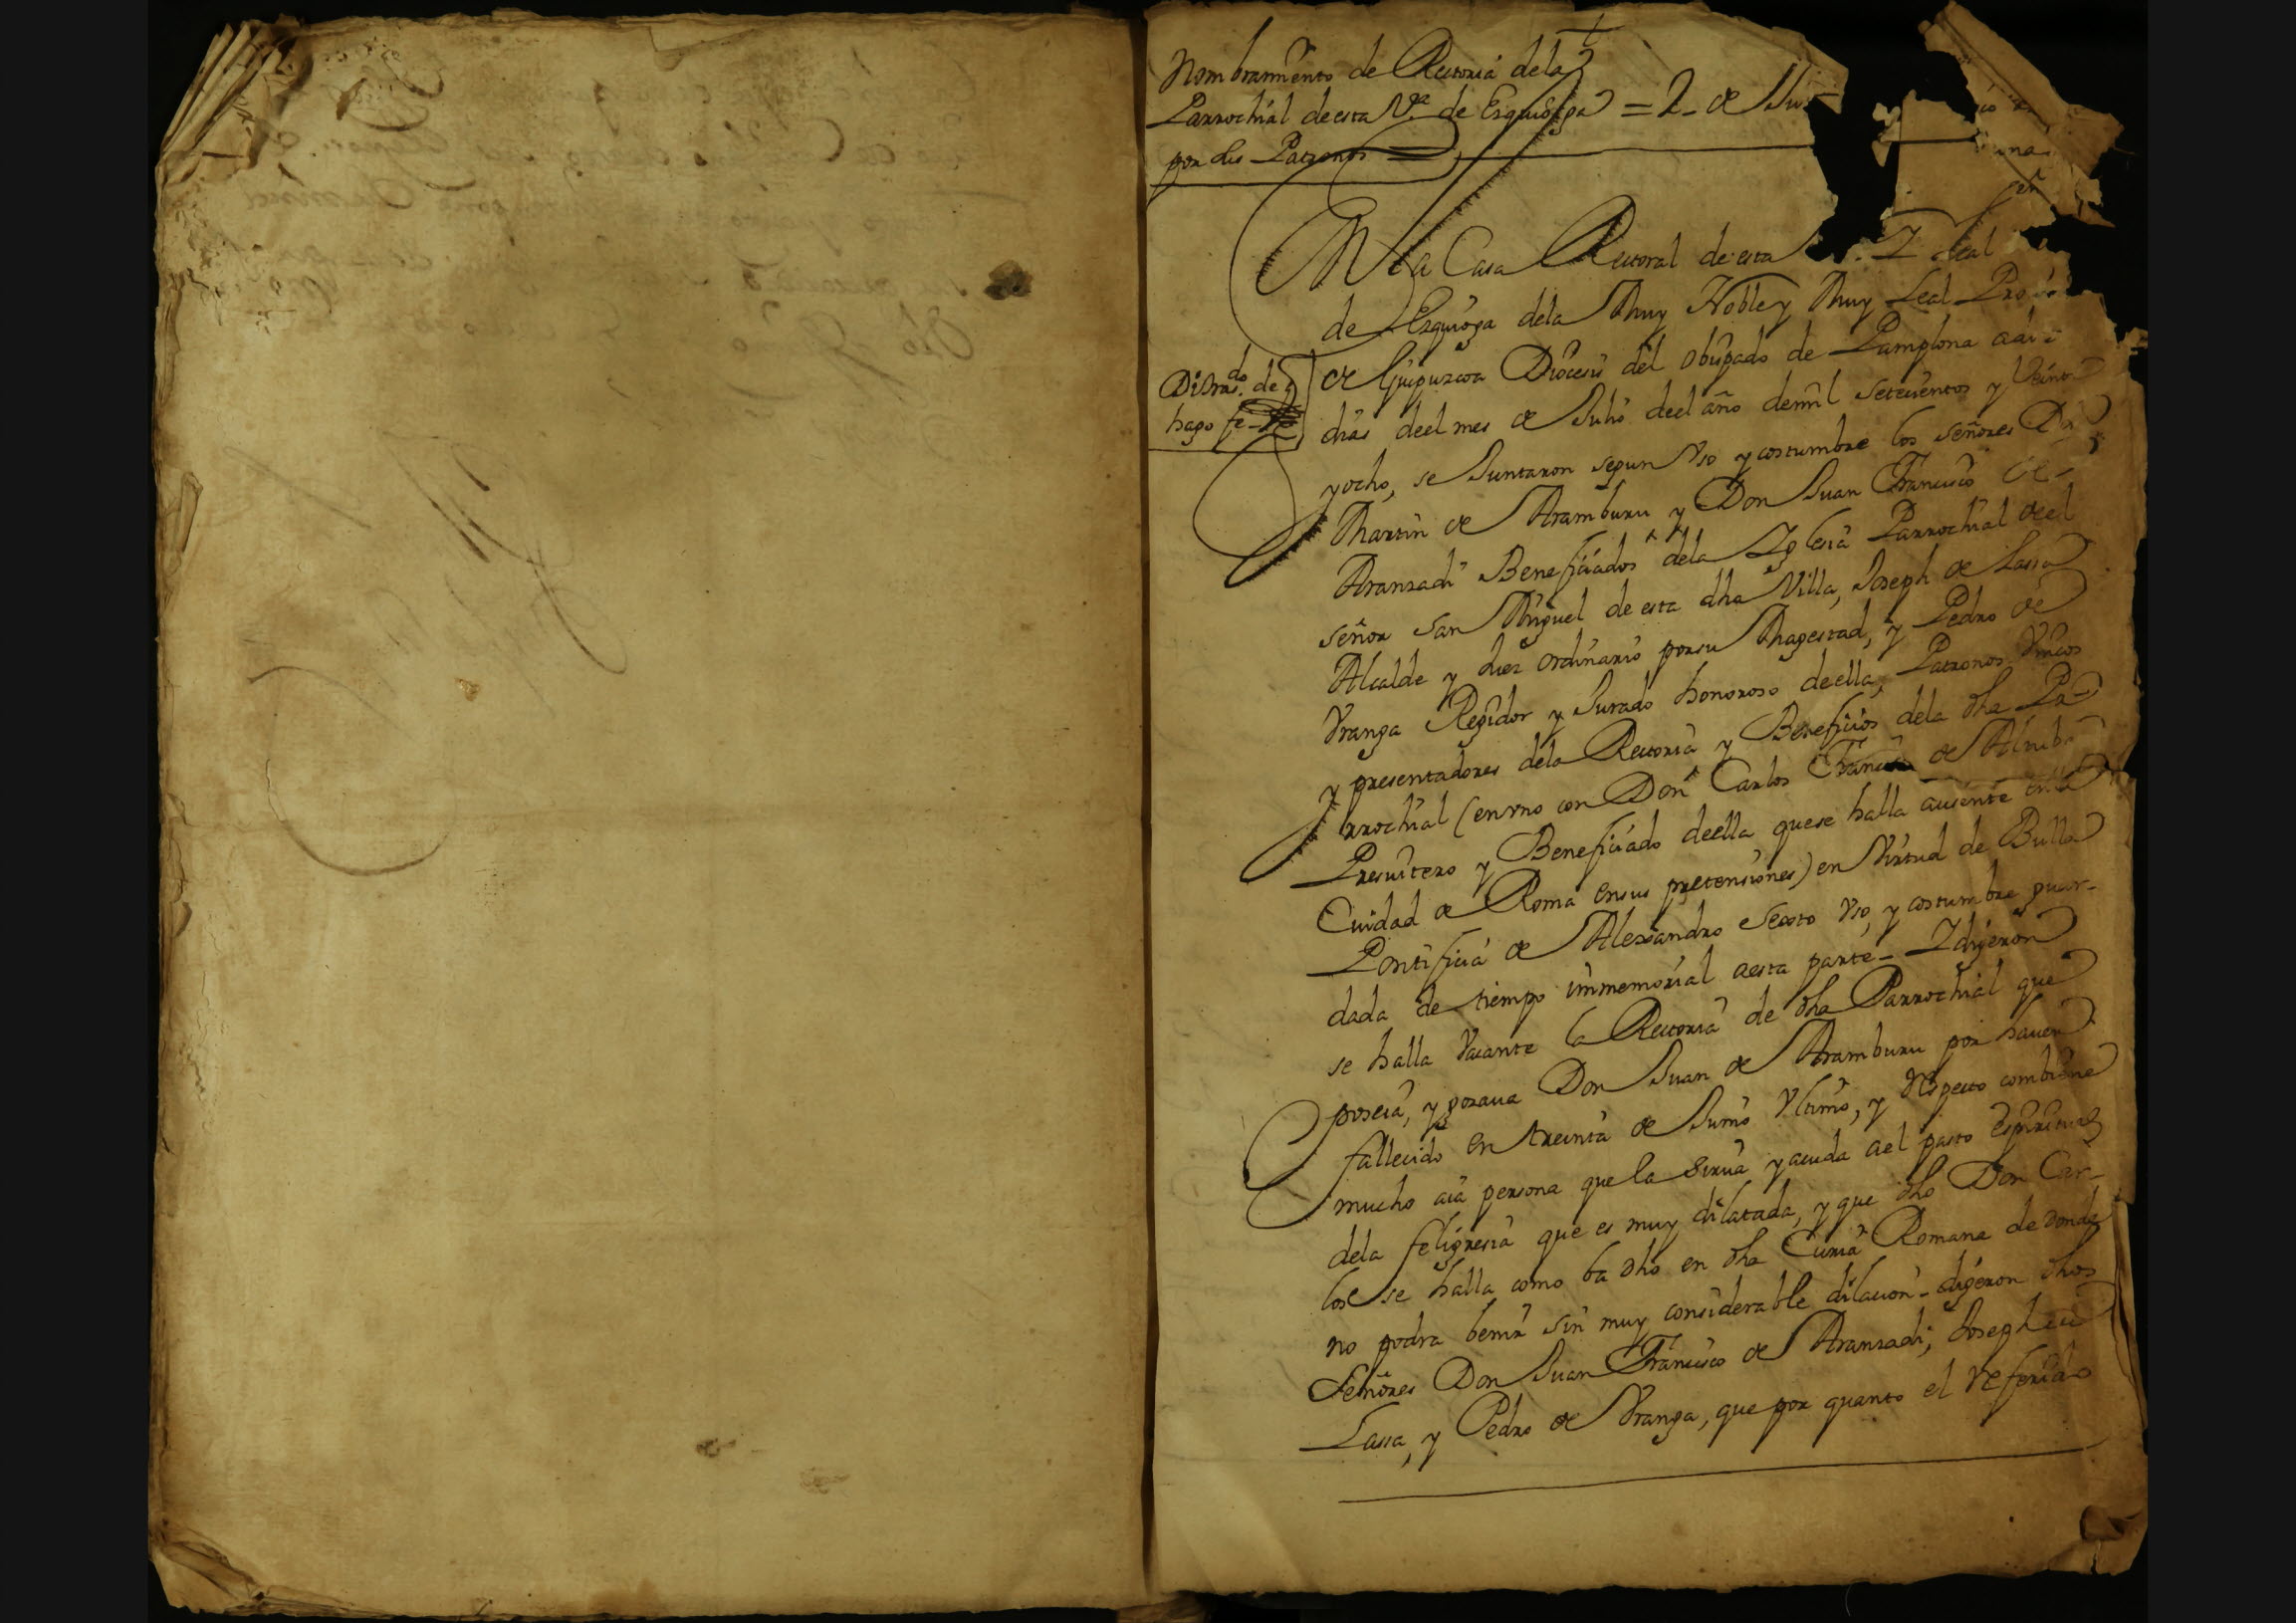 Nombramiento de Rectoria dela
Parrochial de esta Va. de Ezquioga = 2 - de
por sus Patronos
En la Casa Rectoral de esta Leal
de Ezquioga dela Muy Noble y Muy Leal
de Guipuzcoa Diocesis del obispado de Pamplona a dos
Di tras.do de
hago fe
dias deel mes de Julio deel año de mil setecientos y Veinte
y ocho, se Juntaron segun Vso y costumbre los señores Dn
Martin de Aramburu y Don Juan Francisco de
Aranzadi Beneficiados dela Yglesia Parrochial deel
señor San Miguel de esta dha Villa, Joseph de Lassa
Alcalde y Juez ordinario por su Magestad, y Pedro de
Vranga Regidor y Jurado honoroso deella, Patronos Vnicos
y presentadores dela Rectoria y Beneficios dela dha Pa
rrochial (en vno con Don Carlos Francisco de
Presuitero y Beneficiado deella quese halla ausente en la
Ciudad de Roma en sus pretensiones) en Virtud de Bulla
Pontificia de Alexandro Sexto Vso, y costumbre guar-
dada de tiempo immemorial a esta parte - Y digeron
se halla Vacante la Rectoria de dha Parrochial que
poseia, y gozaua Don Juan de Aramburu por hauer
fallecido en treinta de Junio Vltimo, y Respecto combiene
mucho aia persona que la sirua y acuda a el pasto espiritual
dela feligresia que es muy dilatada, y que dho Don Car-
los se halla como ba dho en dha Curia Romana de donde
no podra benir sin muy considerable dilacion - digeron dhos
Señores Don Juan Francisco de Aranzadi, Joseph de
Lassa, y Pedro de Vranga, que por quanto el referido